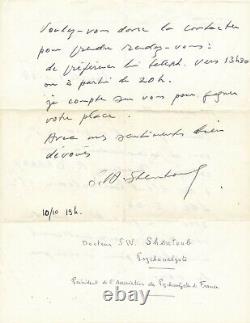 Voulez-vous donc la contacter
pour prendre rendez-vous :
de préférence lui téléph. vers 13h30
ou à partir de 20h.
je compte sur vous pour fixer
votre place.
Avec mes sentiments bien
dévoués
S.W. Shentoub
10/10 19h.
Docteur S.W. Shentoub
Psychanalyste
Président de l'Association de Psychanalyse de France
© thuis.be